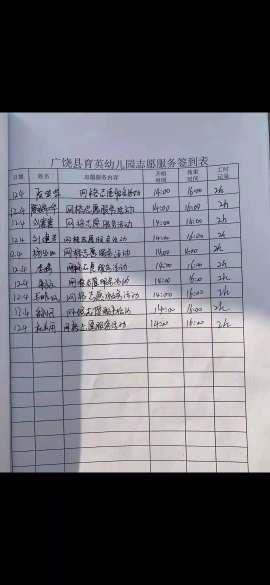 广饶县育英幼儿园志愿服务签到表
日期 姓名 志愿服务内容 开始时间 结束时间 工时记录
12.4 网格志愿服务活动 14:00 16:00 2h
12.4 网格志愿服务活动 14:00 16:00 2h
12.4 网格志愿服务活动 14:00 16:00 2h
12.4 网格志愿服务活动 14:00 16:00 2h
12.4 网格志愿服务活动 14:00 16:00 2h
12.4 网格志愿服务活动 14:00 16:00 2h
12.4 网格志愿服务活动 14:00 16:00 2h
12.4 网格志愿服务活动 14:00 16:00 2h
12.4 网格志愿服务活动 14:00 16:00 2h
12.4 网格志愿服务活动 14:00 16:00 2h